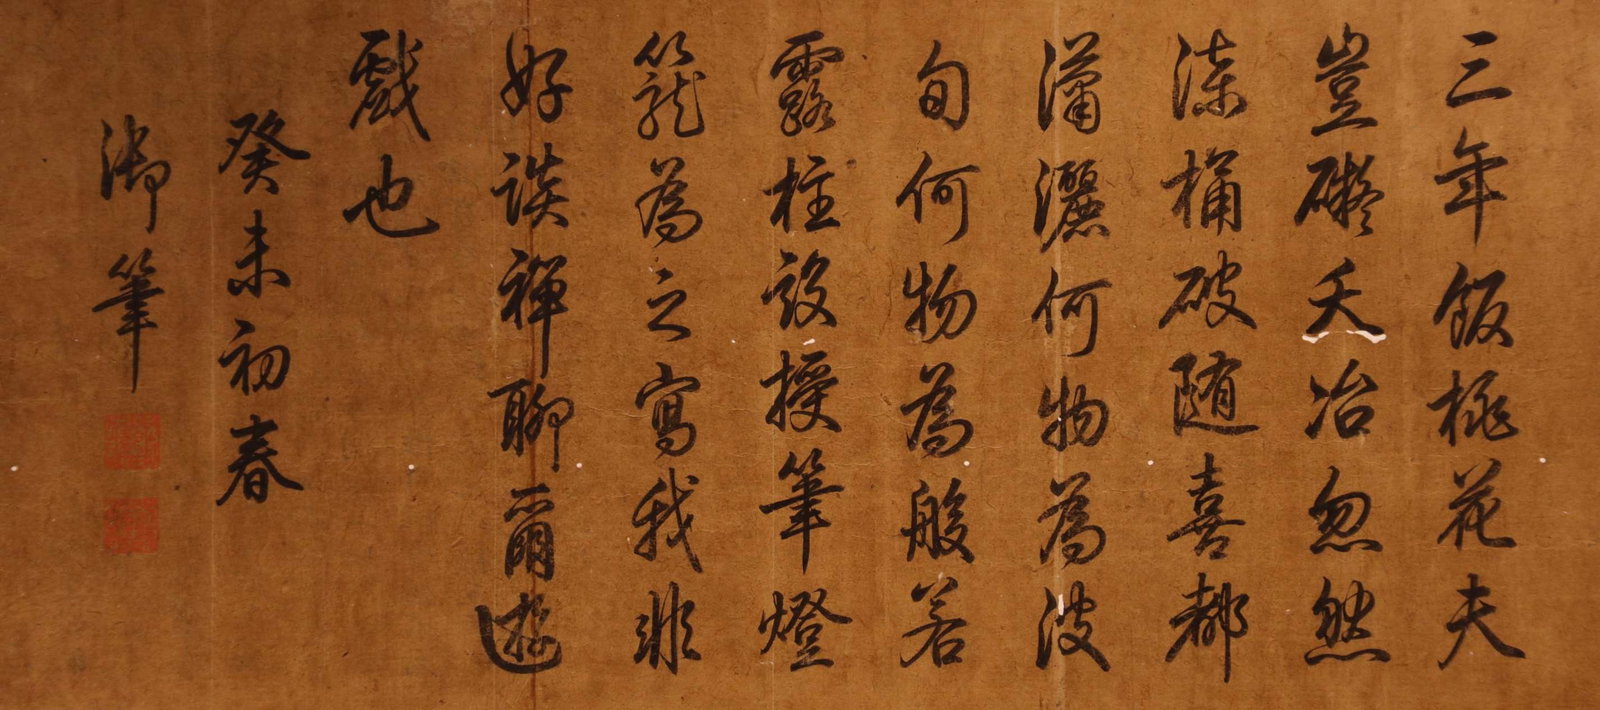 三年飯桃花夫
豈礙夭冶忽然
漆桶破随喜都
瀟灑何物為波
旬何物為般若
露柱設授筆燈
籠為之寫我非
好談禪聊爾遊
戲也
癸未初春
御筆